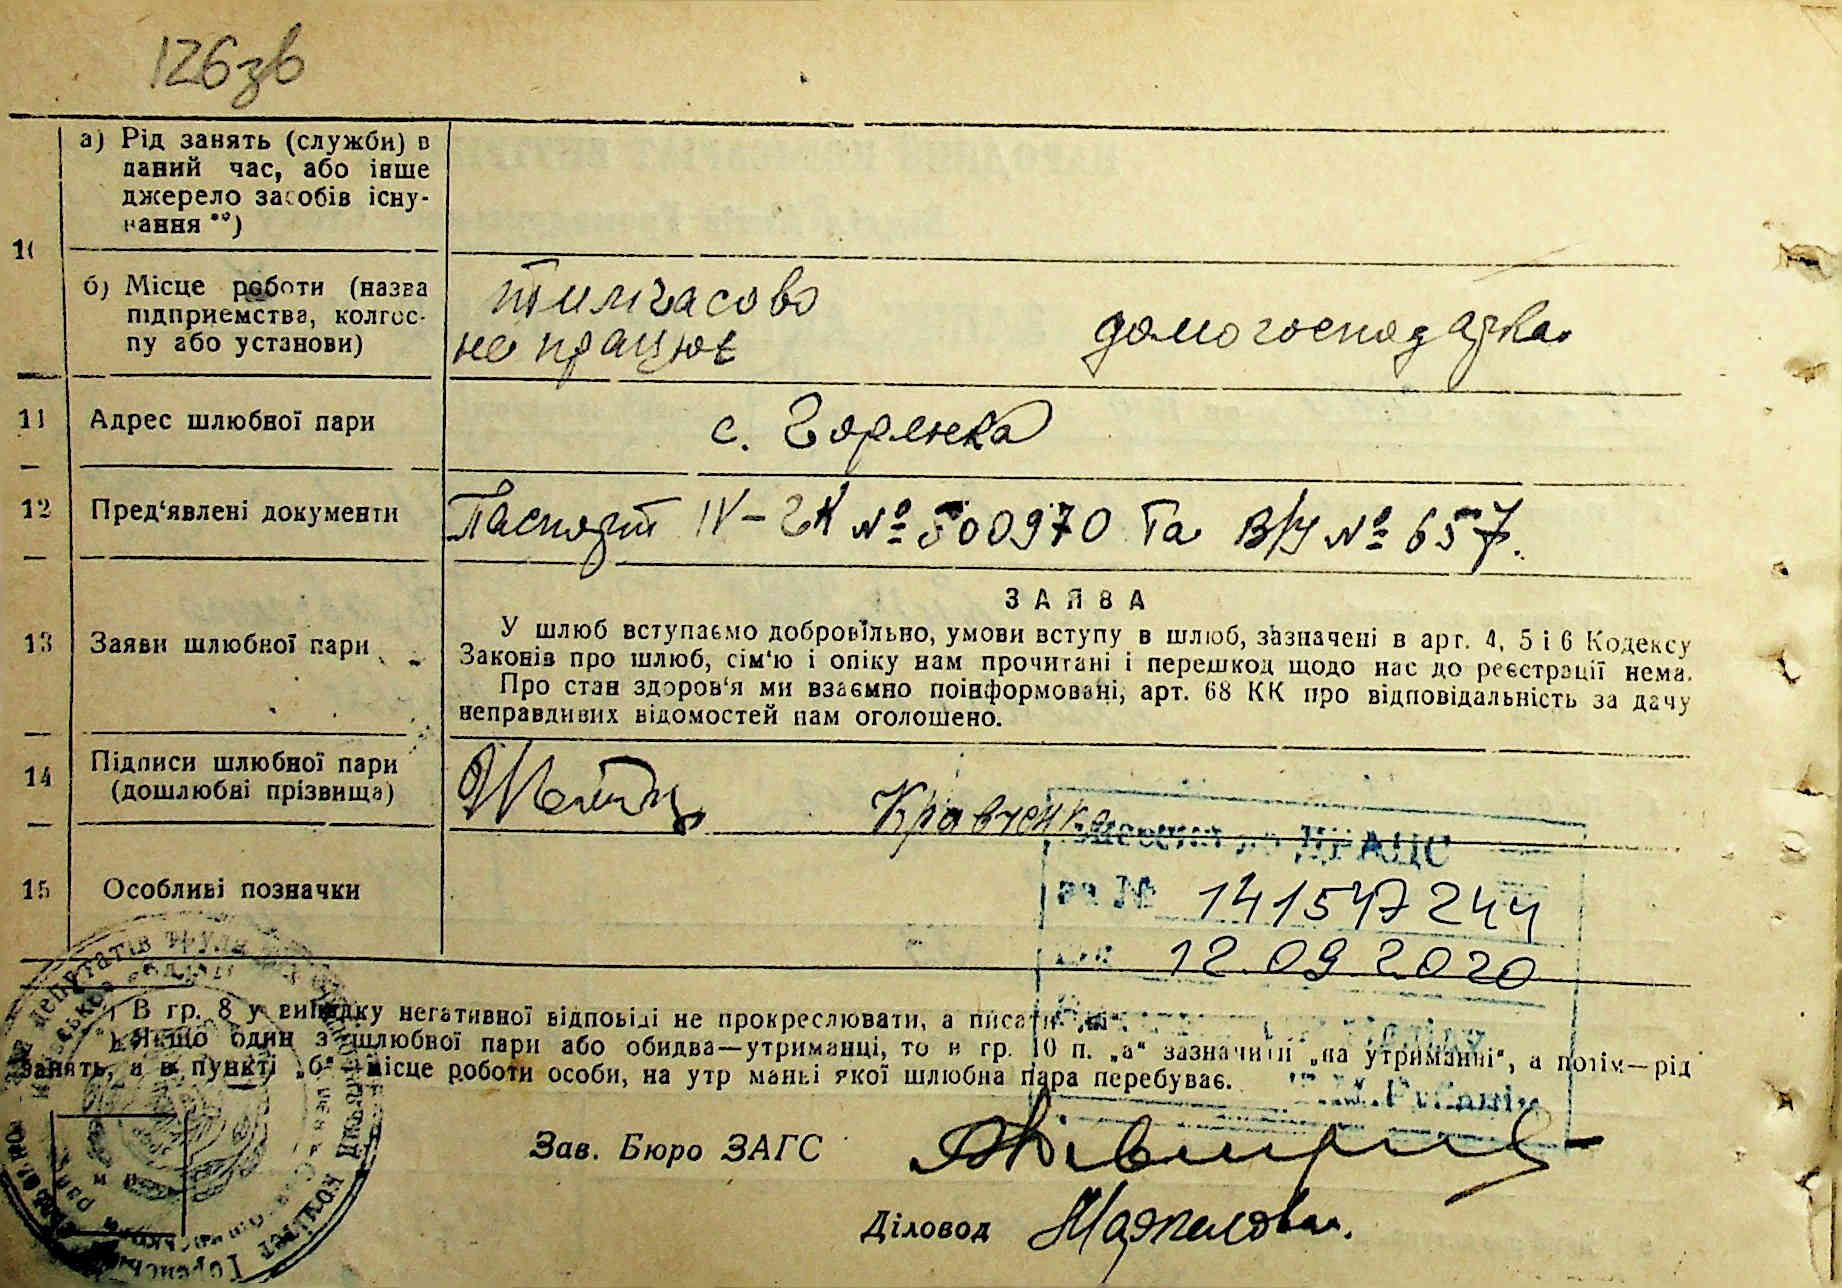 126зв
10
а) Рід занять (служби) в
даний час, або інше
джерело засобів існу-
вання **)
б) Місце роботи (назва
підприємства, колгос-
пу або установи)
тимчасово
не працює
домогосподарка
11 Адрес шлюбної пари
с. Горенка
12 Пред'явлені документи
Паспорт IV-ГК № 500970 та В/У № 657.
13 Заяви шлюбної пари
ЗАЯВА
У шлюб вступаємо добровільно, умови вступу в шлюб, зазначені в арт. 4, 5 і 6 Кодексу
Законів про шлюб, сім'ю і опіку нам прочитані і перешкод щодо нас до реєстрації нема.
Про стан здоров'я ми взаємно поінформовані, арт. 68 КК про відповідальність за дачу
неправдивих відомостей нам оголошено.
14 Підписи шлюбної пари
(дошлюбні прізвища)
Кравченко
15 Особливі позначки
до ДРАЦС
за № 141547244
12.09.2020
) В гр. 8 у випадку негативної відповіді не прокреслювати, а писати
) Якщо один з шлюбної пари або обидва—утриманці, то в гр. 10 п. „а“ зазначити „на утриманні“, а потім—рід
занять, а в пункті „б“ місце роботи особи, на утриманні якої шлюбна пара перебуває.
Зав. Бюро ЗАГС
Діловод